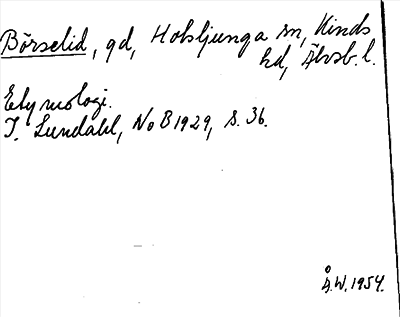 Börselid, gd, Holsljunga sn, Kinds
hd, Älvsb. l.
Etymologi.
I. Lundahl, NoB 1929, s. 36.
Å.W. 1954.